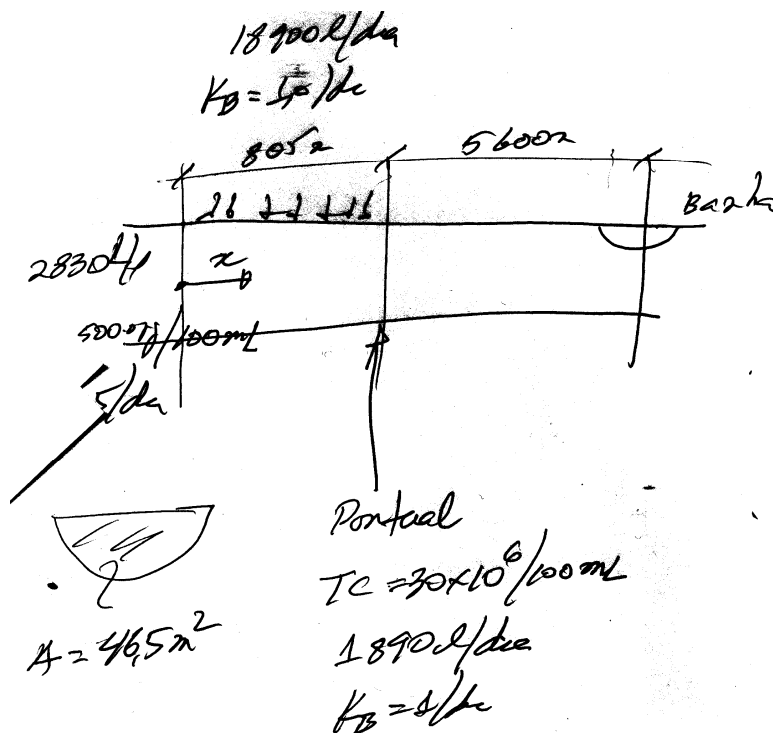 18900l/dia
K_B = 1,0/dia
805m
5600m
Bazha
2830 l/s
x
500 org/100mL
A = 46,5m²
Pontual
TC = 30x10⁶/100mL
1890l/dia
K_B = 1/dia